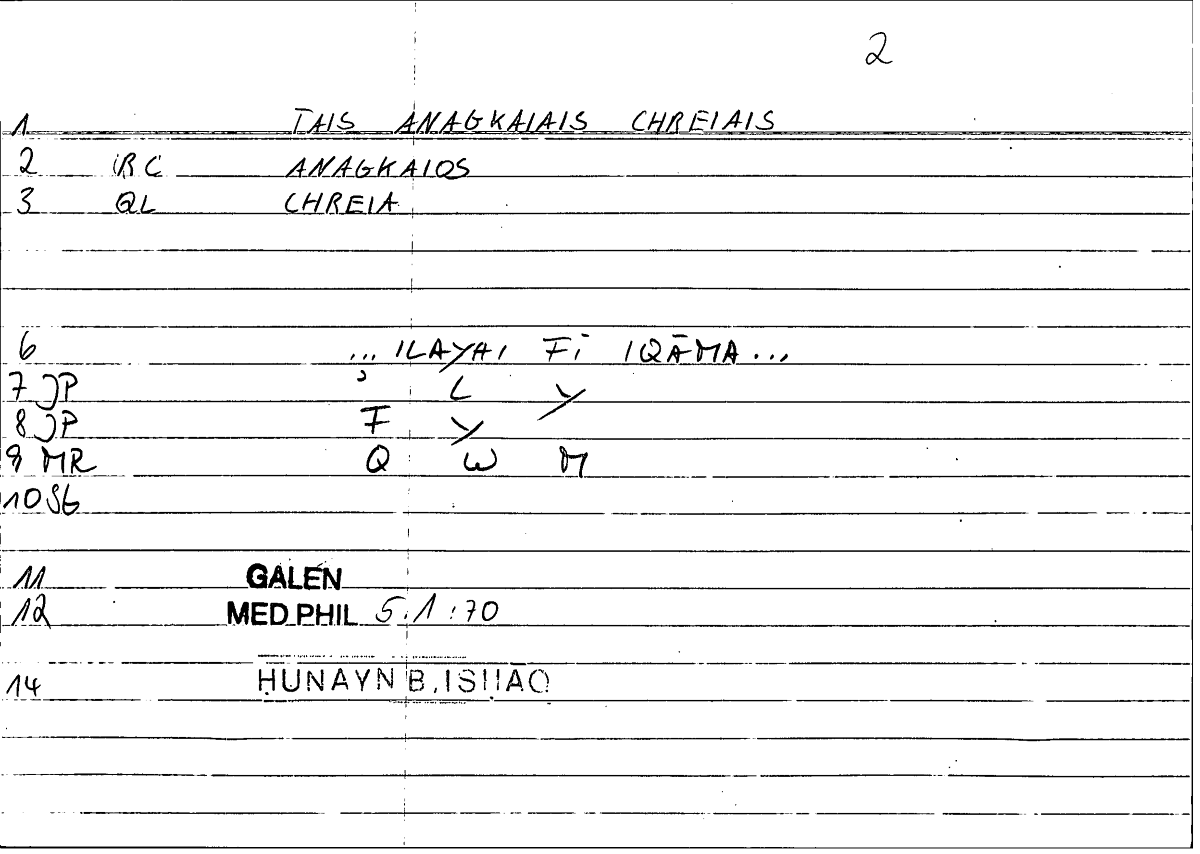 2
1 TAIS ANAGKAIAIS CHREIAIS
2 RC ANAGKAIOS
3 QL CHREIA
6 ... ILAYHI FĪ IQĀMA ...
7 JP ʾ L Y
8 JP F Y
9 MR Q W M
10 SG
11 GALEN
12 MED PHIL 5:1:70
14 ḤUNAYN B. ISḤĀQ